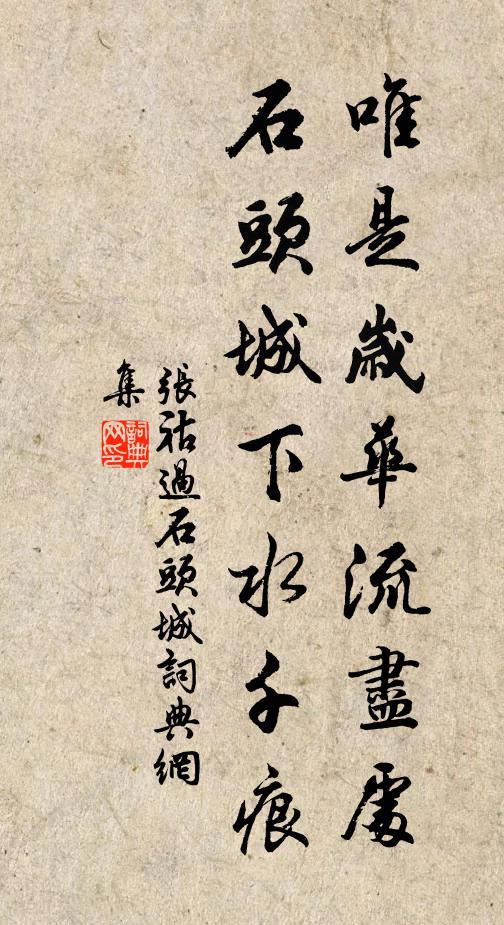 唯是歲華流盡處
石頭城下水千痕
張祜過石頭城詞典網
集
詞典
网印